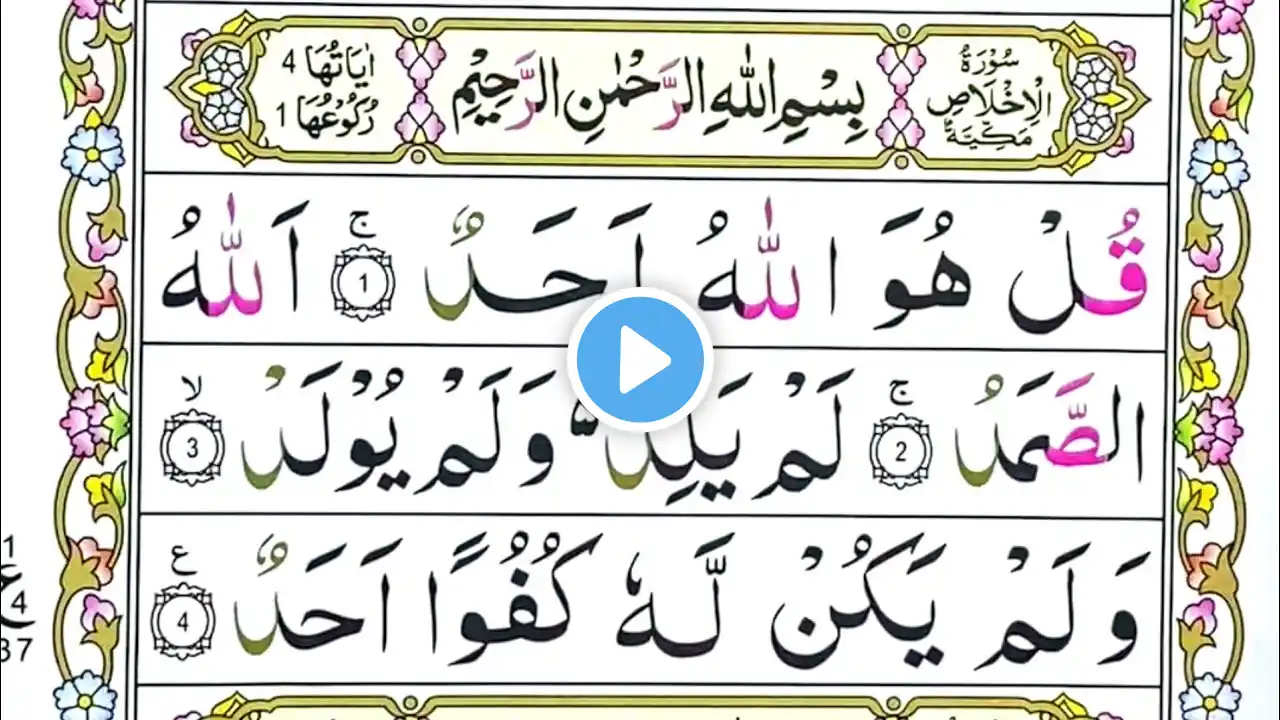 سُوْرَةُ الْاِخْلَاصِ مَكِّيَّةٌ
بِسْمِ اللّٰهِ الرَّحْمٰنِ الرَّحِيْمِ
اٰيَاتُهَا 4
رُكُوْعُهَا 1
قُلْ هُوَ اللّٰهُ اَحَدٌ ۚ 1 اَللّٰهُ
الصَّمَدُ ۚ 2 لَمْ يَلِدْ ۙ وَلَمْ يُوْلَدْ ۙ 3
وَلَمْ يَكُنْ لَّهٗ كُفُوًا اَحَدٌ ع 4
1
ع
4
37